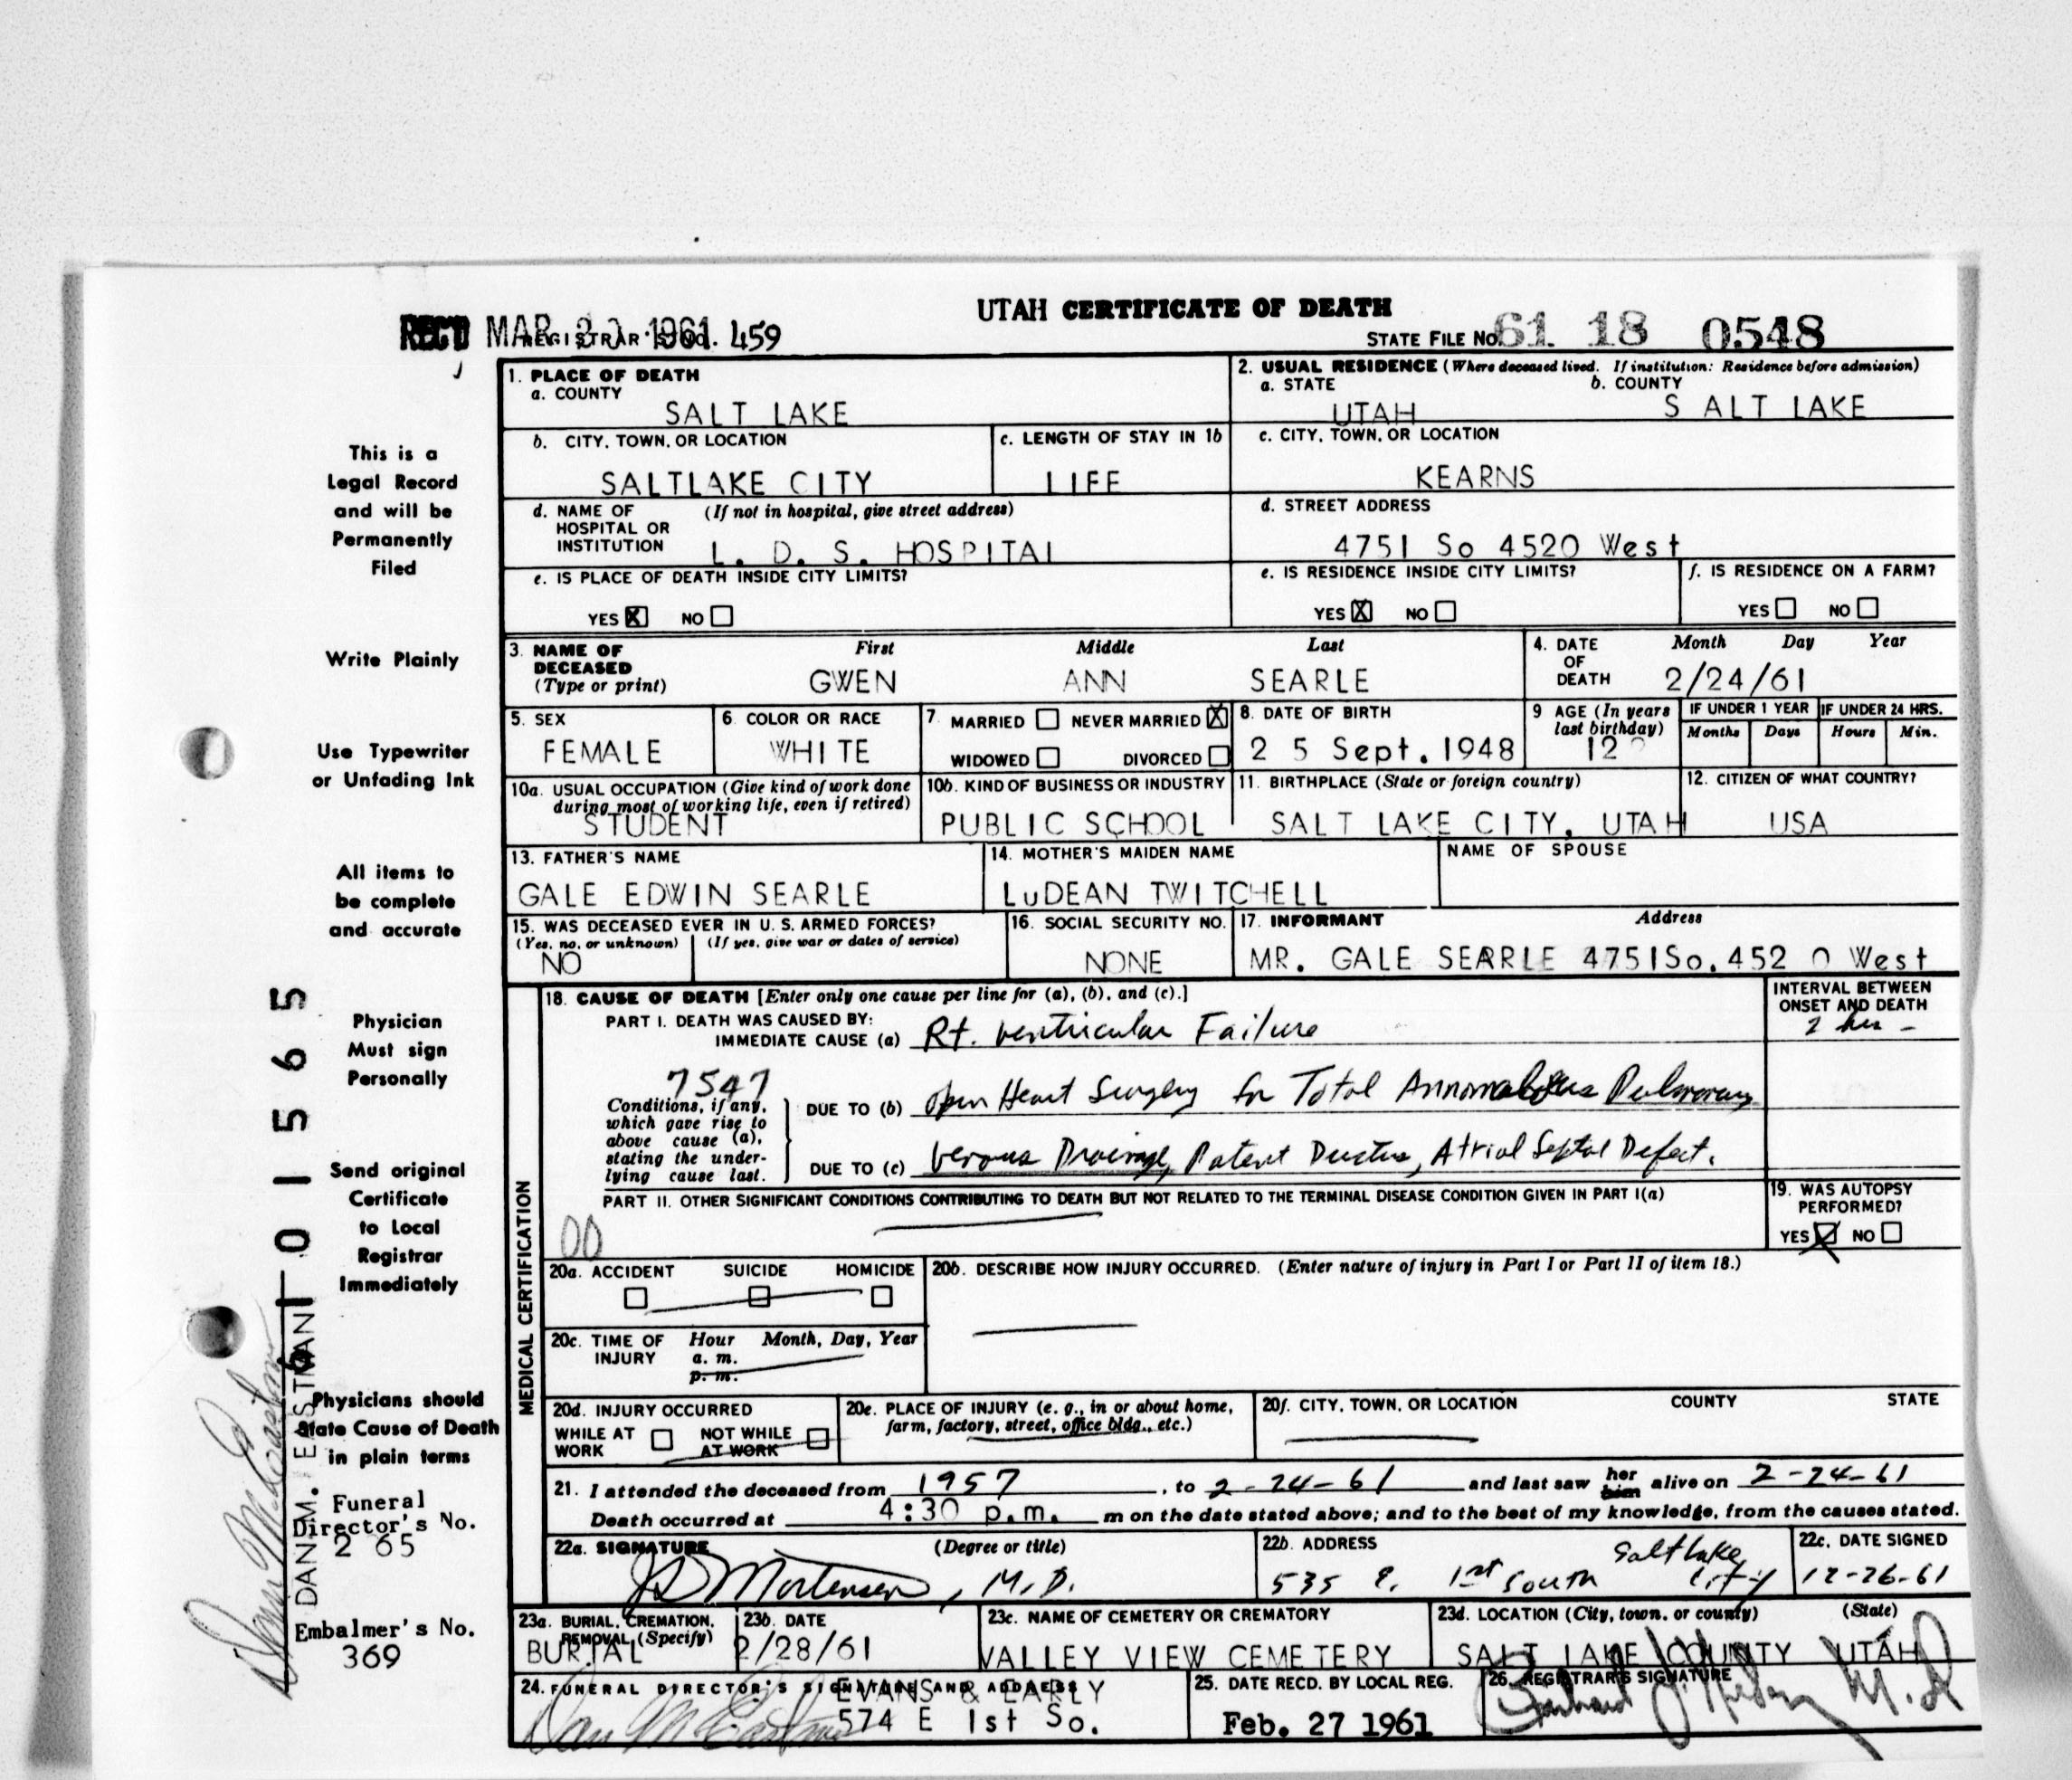 UTAH CERTIFICATE OF DEATH
REC'D MAR 1961
REGISTRAR'S NO. 459
STATE FILE NO. 61 18 0548
1. PLACE OF DEATH
a. COUNTY
SALT LAKE
2. USUAL RESIDENCE (Where deceased lived. If institution: Residence before admission)
a. STATE b. COUNTY
UTAH S ALT LAKE
b. CITY, TOWN, OR LOCATION
SALTLAKE CITY
c. LENGTH OF STAY IN 1b
LIFE
c. CITY, TOWN, OR LOCATION
KEARNS
d. NAME OF HOSPITAL OR INSTITUTION (If not in hospital, give street address)
L. D. S. HOSPITAL
d. STREET ADDRESS
4751 So 4520 West
e. IS PLACE OF DEATH INSIDE CITY LIMITS?
YES X NO
e. IS RESIDENCE INSIDE CITY LIMITS?
YES X NO
f. IS RESIDENCE ON A FARM?
YES NO
3. NAME OF DECEASED (Type or print)
First Middle Last
GWEN ANN SEARLE
4. DATE OF DEATH Month Day Year
2/24/61
5. SEX
FEMALE
6. COLOR OR RACE
WHITE
7. MARRIED NEVER MARRIED X
WIDOWED DIVORCED
8. DATE OF BIRTH
2 5 Sept. 1948
9 AGE (In years last birthday)
12
IF UNDER 1 YEAR
Months Days
IF UNDER 24 HRS.
Hours Min.
10a. USUAL OCCUPATION (Give kind of work done during most of working life, even if retired)
STUDENT
10b. KIND OF BUSINESS OR INDUSTRY
PUBLIC SCHOOL
11. BIRTHPLACE (State or foreign country)
SALT LAKE CITY, UTAH
12. CITIZEN OF WHAT COUNTRY?
USA
13. FATHER'S NAME
GALE EDWIN SEARLE
14. MOTHER'S MAIDEN NAME
LuDEAN TWITCHELL
NAME OF SPOUSE
15. WAS DECEASED EVER IN U. S. ARMED FORCES?
(Yes, no, or unknown) (If yes, give war or dates of service)
NO
16. SOCIAL SECURITY NO.
NONE
17. INFORMANT Address
MR. GALE SEARLE 4751So. 452 0 West
18. CAUSE OF DEATH [Enter only one cause per line for (a), (b), and (c).]
PART I. DEATH WAS CAUSED BY:
IMMEDIATE CAUSE (a) Rt. ventricular Failure
INTERVAL BETWEEN ONSET AND DEATH
2 hrs -
7547
Conditions, if any, which gave rise to above cause (a), stating the underlying cause last.
DUE TO (b) Open Heart Surgery for Total Annomalous Pulmonary
DUE TO (c) Venous Drainage, Patent Ductus, Atrial Septal Defect.
PART II. OTHER SIGNIFICANT CONDITIONS CONTRIBUTING TO DEATH BUT NOT RELATED TO THE TERMINAL DISEASE CONDITION GIVEN IN PART I(a)
00
19. WAS AUTOPSY PERFORMED?
YES X NO
MEDICAL CERTIFICATION
20a. ACCIDENT SUICIDE HOMICIDE
20b. DESCRIBE HOW INJURY OCCURRED. (Enter nature of injury in Part I or Part II of item 18.)
20c. TIME OF INJURY Hour Month, Day, Year
a. m.
p. m.
20d. INJURY OCCURRED
WHILE AT WORK NOT WHILE AT WORK
20e. PLACE OF INJURY (e. g., in or about home, farm, factory, street, office bldg., etc.)
20f. CITY, TOWN, OR LOCATION COUNTY STATE
21. I attended the deceased from 1957, to 2-24-61 and last saw her him alive on 2-24-61
Death occurred at 4:30 p.m. m on the date stated above; and to the best of my knowledge, from the causes stated.
22a. SIGNATURE (Degree or title)
JD Mortensen, M.D.
22b. ADDRESS
535 E. 1st South Salt Lake City
22c. DATE SIGNED
12-26-61
23a. BURIAL, CREMATION, REMOVAL (Specify)
BURIAL
23b. DATE
2/28/61
23c. NAME OF CEMETERY OR CREMATORY
VALLEY VIEW CEMETERY
23d. LOCATION (City, town, or county) (State)
SALT LAKE COUNTY UTAH
24. FUNERAL DIRECTOR'S SIGNATURE AND ADDRESS
EVANS & EARLY
574 E 1st So.
Dan M Eastman
25. DATE RECD. BY LOCAL REG.
Feb. 27 1961
26. REGISTRAR'S SIGNATURE
M.D
This is a
Legal Record
and will be
Permanently
Filed
Write Plainly
Use Typewriter
or Unfading Ink
All items to
be complete
and accurate
Physician
Must sign
Personally
Send original
Certificate
to Local
Registrar
Immediately
Physicians should
State Cause of Death
in plain terms
Funeral
Director's No.
2 65
Embalmer's No.
369
01565
DAN M. EASTMAN
Dan M Eastman